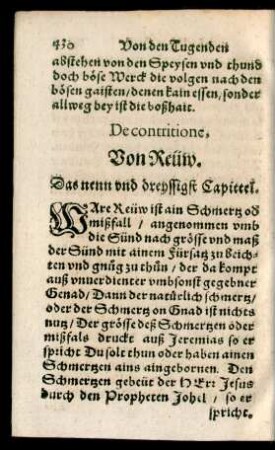 430 Von den Tugenden
abstehen von den Speysen vnd thund
doch böse Werck die volgen nach den
bösen gaisten/denen kain essen/sonder
allweg bey ist die boßhait.
De contritione,
Von Reüw.
Das neun vnd dreyssigst Capittel.
WAre Reüw ist ain Schmertz oď
mißfall / angenommen vmb
die Sünd nach grösse vnd maß
der Sünd mit ainem Fürsatz zu Beich-
ten vnd gnůg zu thůn / der da kompt
auß vnuerdienter vmbsonst gegebner
Genad/ Dann der natürlich schmertz/
oder der Schmertz on Gnad ist nichts
nutz/ Der grösse deß Schmertzen oder
mißfals druckt auß Jeremias so er
spricht Du solt thun oder haben ainen
Schmertzen ains aingebornen. Den
Schmertzen gebeüt der HErr Jesus
durch den Propheten Johel / so er
spricht.